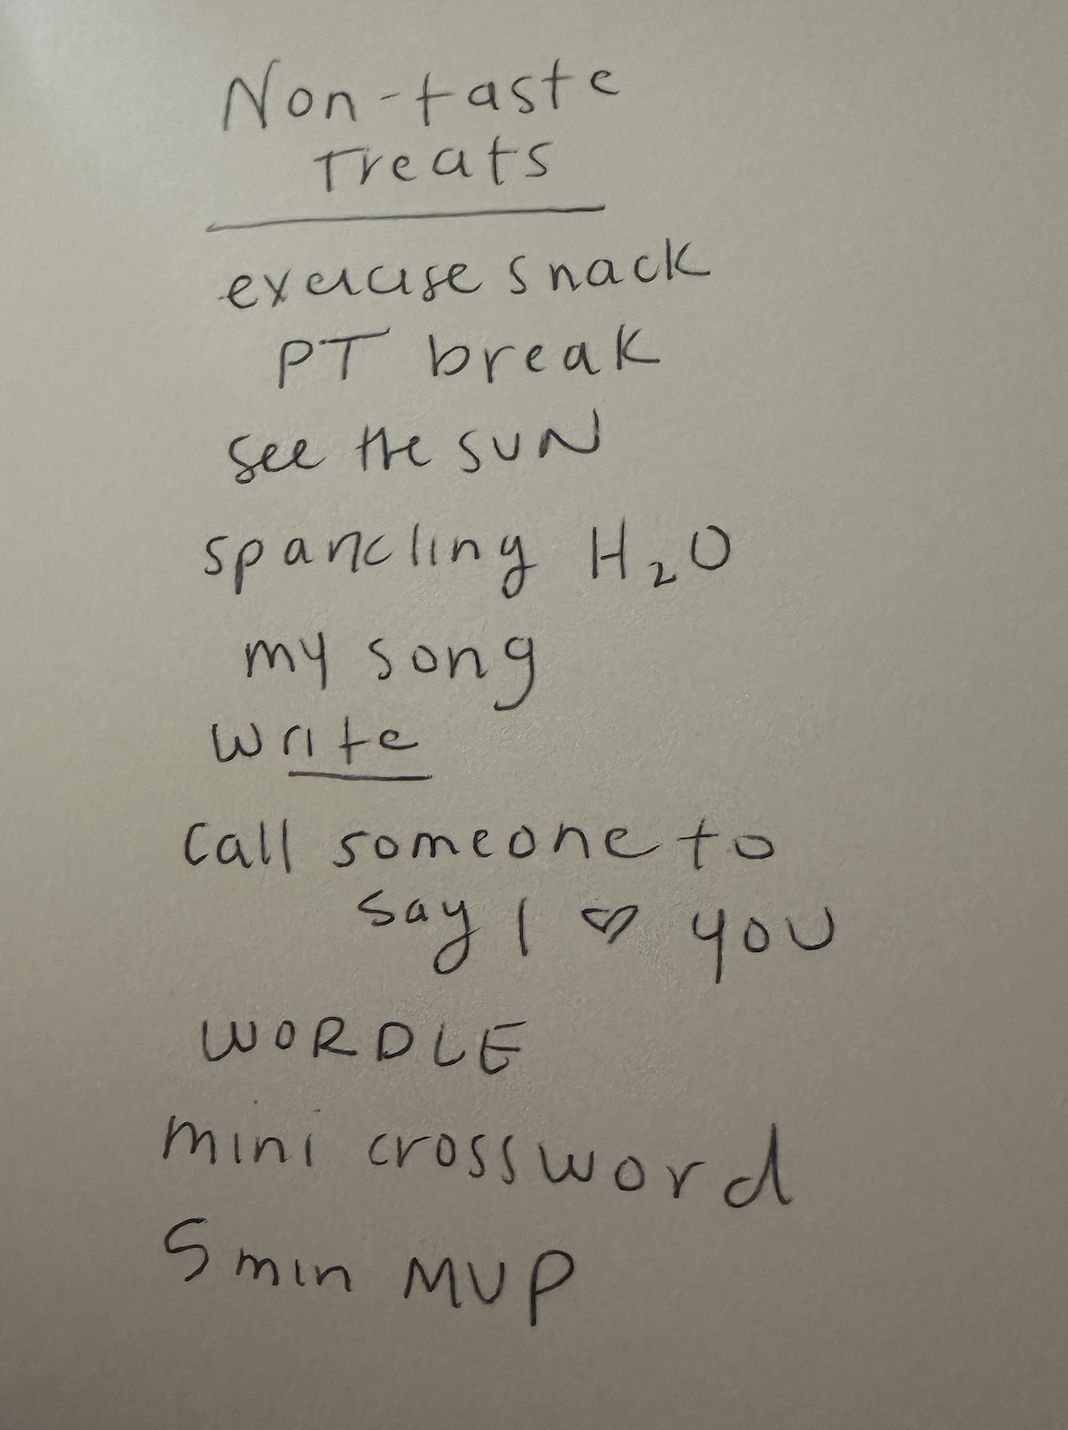 Non-taste
Treats
exercise snack
PT break
see the SUN
sparkling H₂O
my song
write
Call someone to
say I ♡ you
WORDLE
mini crossword
5 min MVP